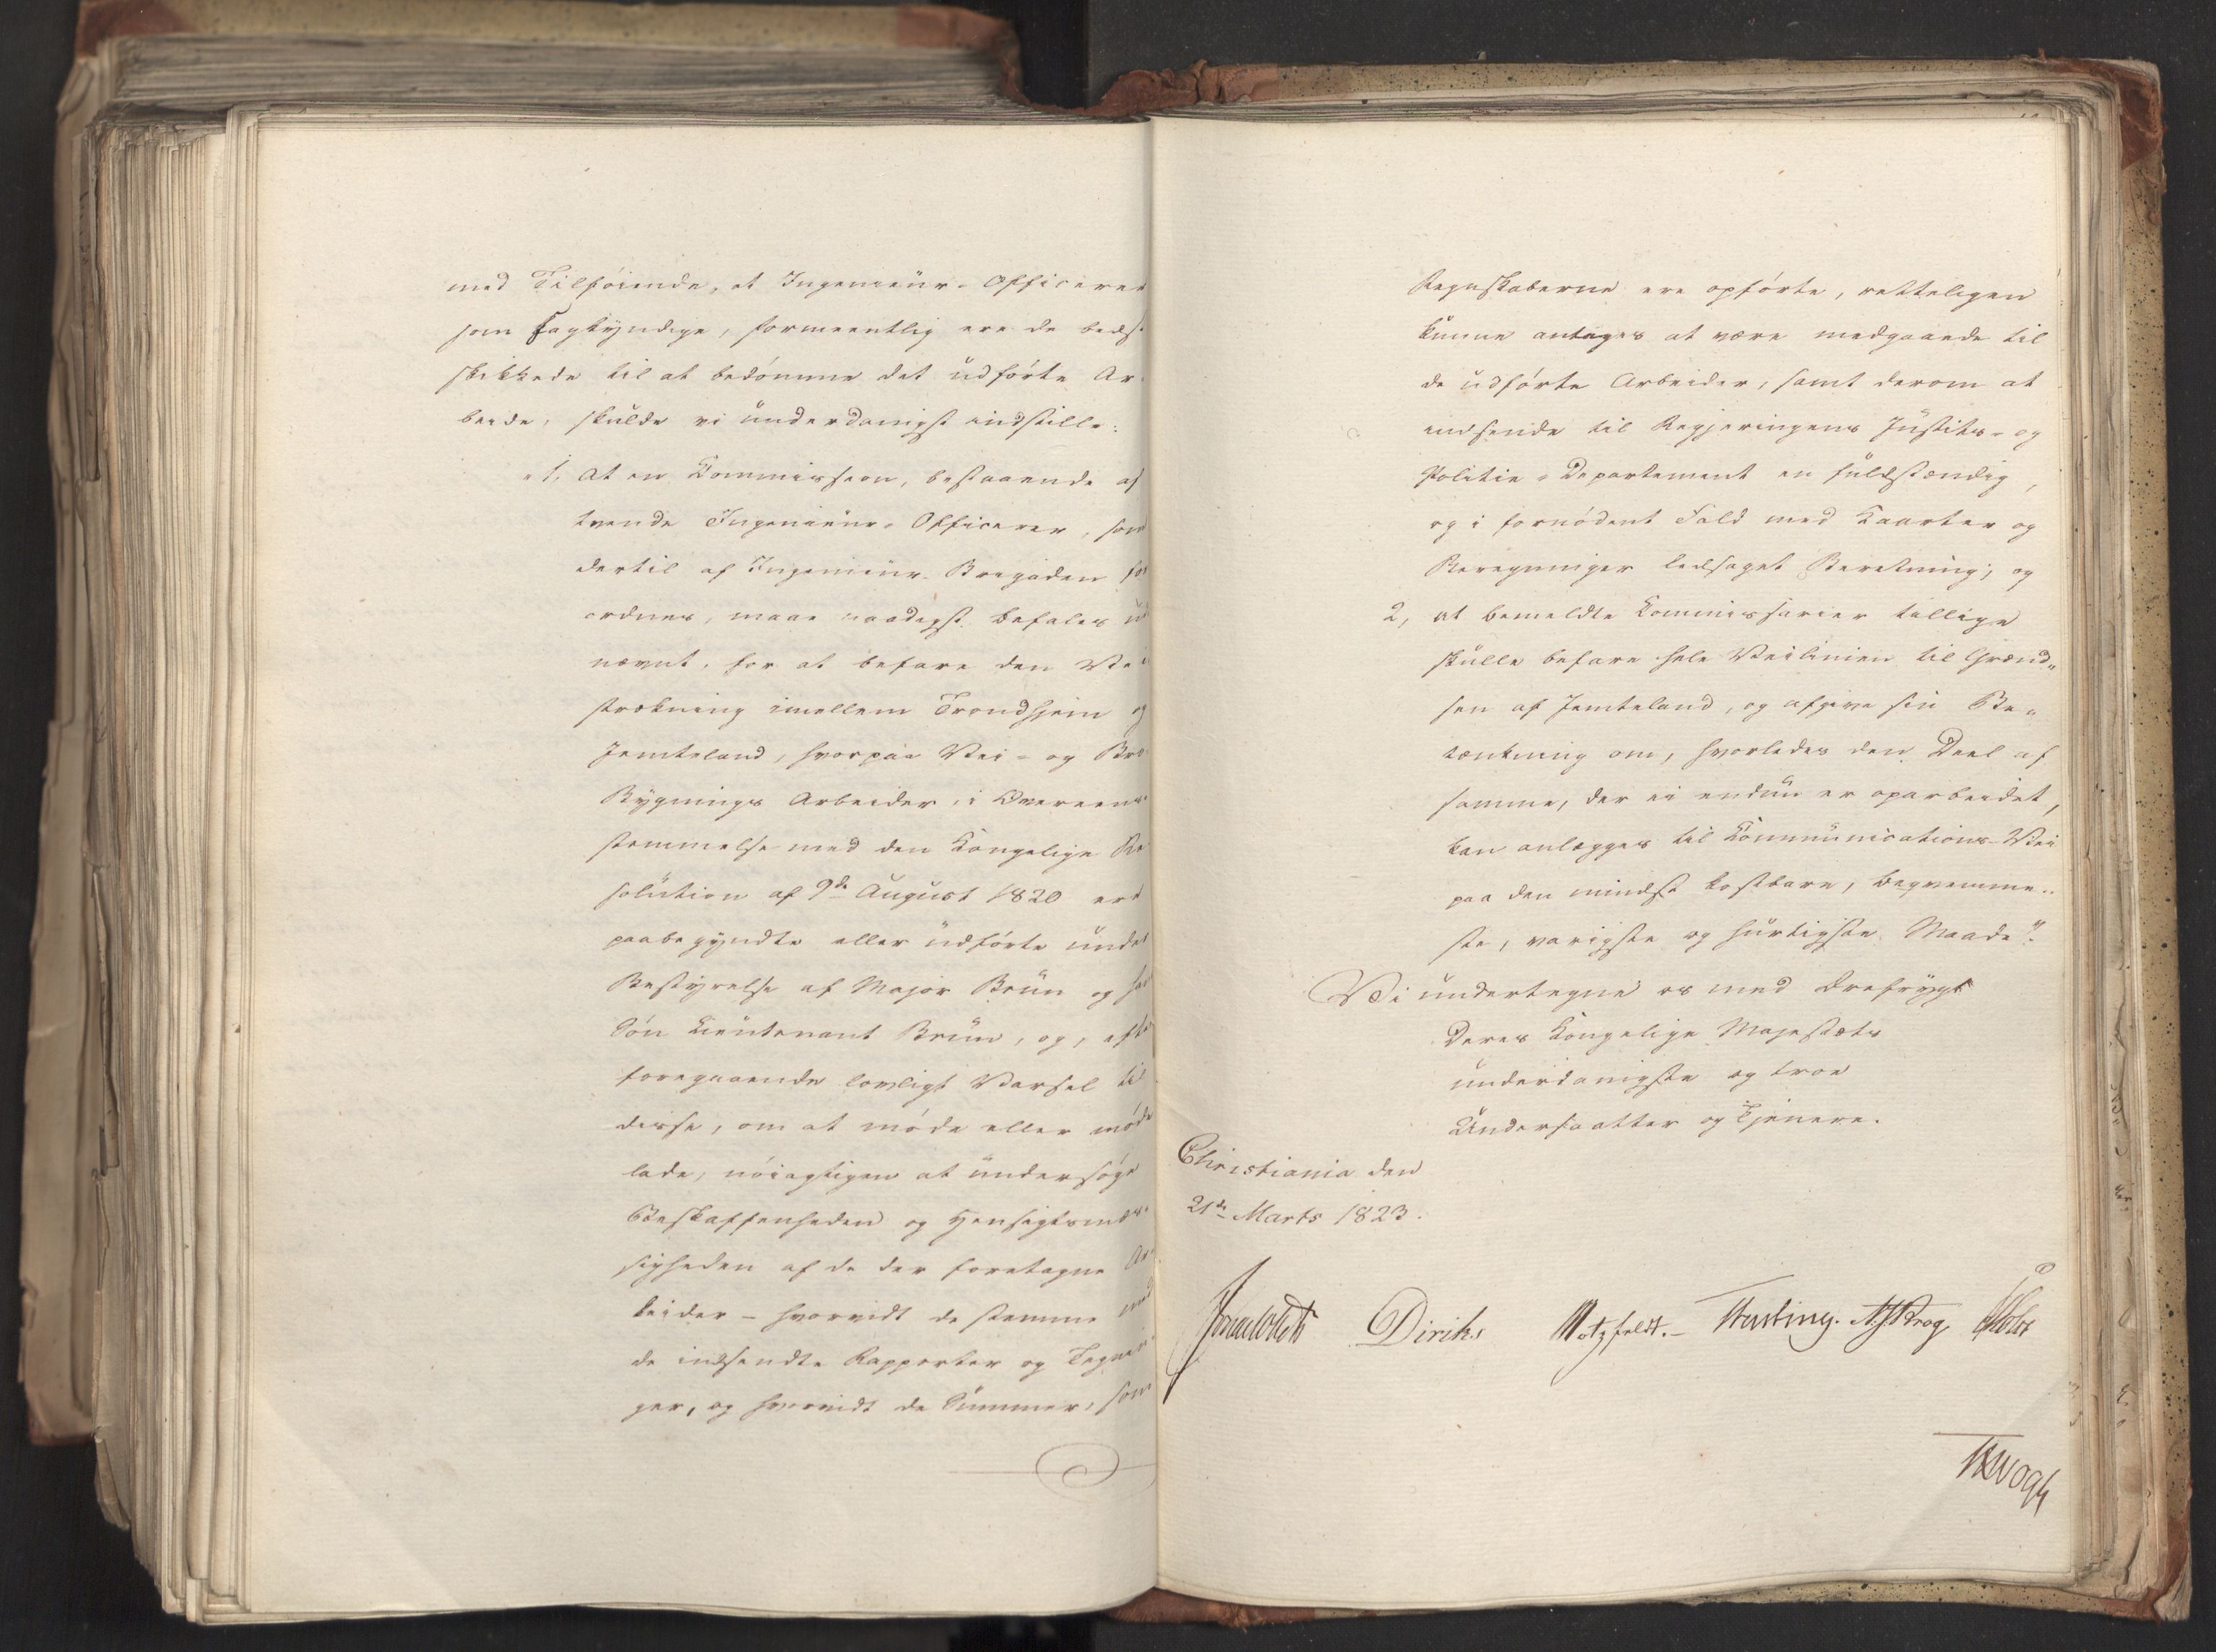 med Tilføiende, at Ingenieur-Officerer
som Sagkyndige, formeentlig ere de bedst
skikkede til at bedømme det udførte Ar-
beide, skulde vi underdanigst indstille:
"1, At en Kommission, bestaaende af
tvende Ingenieur-Officerer, som
dertil af Ingenieur-Brigaden for
ordnes, maae naadigst befales ud
nævnt, for at befare den Vei
strækning imellem Trondhjem og
Jemteland, hvorpaa Vei- og Bro
Bygnings Arbeider, i Overeens-
stemmelse med den Kongelige Re
solution af 9de August 1820 ere
paabegyndte eller udførte under
Bestyrelse af Major Brun og hans
Søn Lieutenant Brun, og, efter
foregaaende lovligt Varsel til
disse, om at møde eller møde
lade, nøiagtigen at undersøge
Beskaffenheden og Hensigtsmæs-
sigheden af de der foretagne Ar-
beider - hvorvidt de stemme med
de indsendte Rapporter og Tegnin
ger, og hvorvidt de Summer, som
Regnskaberne ere opførte, retteligen
kunne antages at være medgaaede til
de udførte Arbeider, samt derom at
indsende til Regjeringens Justits- og
Politie-Departement en fuldstændig,
og i fornødent Fald med Kaarter og
Beregninger ledsaget Beretning; og
2, at bemeldte Kommissarier tillige
skulle befare hele Veilinien til Grænd„
sen af Jemteland, og afgive sin Be„
tænkning om, hvorledes den Deel af
samme, der ei endnu er oparbeidet,
kan anlægges til Kommunications-Vei
paa den mindst kostbare, beqvemme„
ste, varigste og hurtigste Maade".
Vi undertegne os med Ærefrygt
Deres Kongelige Majestæts
underdanigste og troe
Undersaatter og Tjenere.
Christiania den
21de Marts 1823.
Diriks Motzfeldt.- Fasting. Krog Holst
Vogt